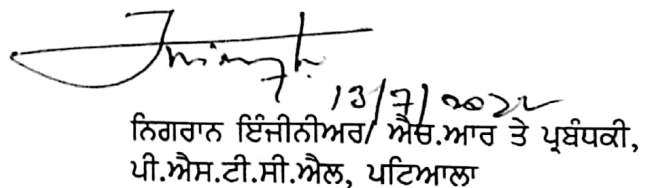 13/7/2022
ਨਿਗਰਾਨ ਇੰਜੀਨੀਅਰ/ ਐਚ.ਆਰ ਤੇ ਪ੍ਰਬੰਧਕੀ,
ਪੀ.ਐਸ.ਟੀ.ਸੀ.ਐਲ, ਪਟਿਆਲਾ